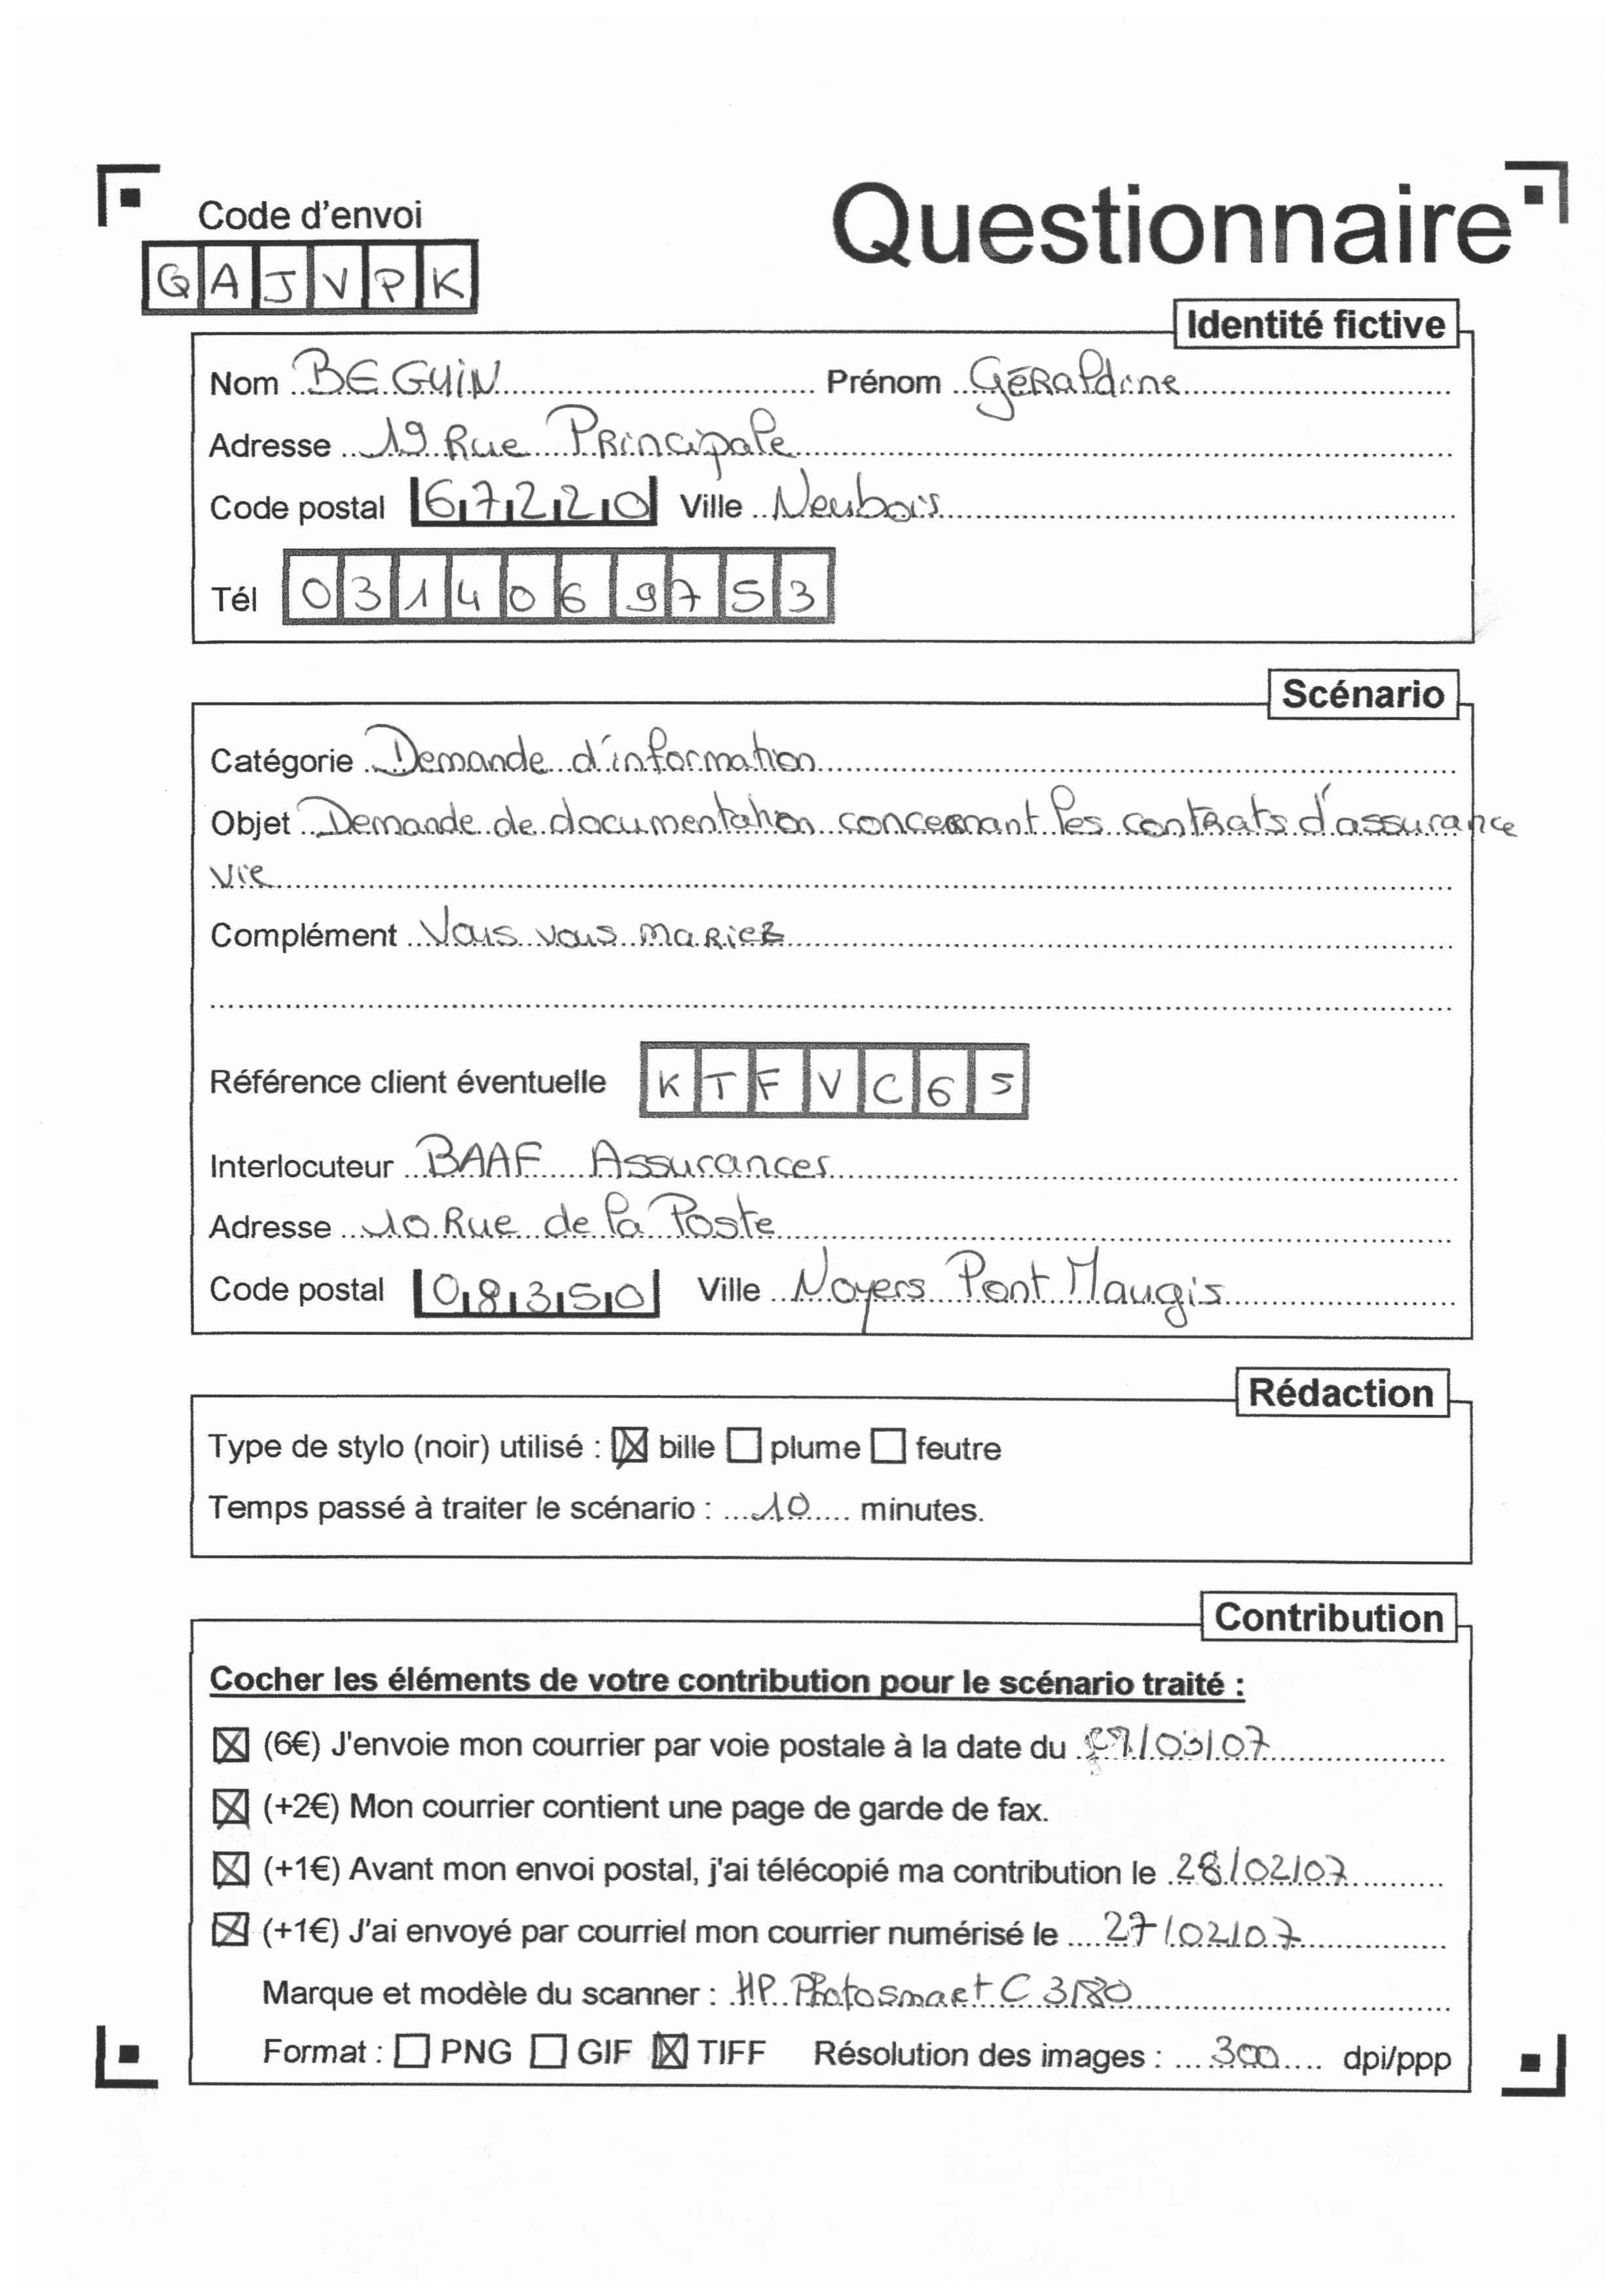 Code d'envoi
Questionnaire
GAJVPK
Identité fictive
Nom BEGUIN Prénom GéRaldine
Adresse 19 Rue Principale
Code postal 67220 Ville Neubois
Tél 0314069753
Scénario
Catégorie Demande d'information
Objet Demande de documentation concernant les contrats d'assurance
vie
Complément Vous vous mariez
Référence client éventuelle KTFVC65
Interlocuteur BAAF Assurances
Adresse 10 Rue de la Poste
Code postal 08350 Ville Noyers Pont Maugis
Rédaction
Type de stylo (noir) utilisé : ☒ bille ☐ plume ☐ feutre
Temps passé à traiter le scénario : 10 minutes.
Contribution
Cocher les éléments de votre contribution pour le scénario traité :
☒ (6€) J'envoie mon courrier par voie postale à la date du
☒ (+2€) Mon courrier contient une page de garde de fax.
☒ (+1€) Avant mon envoi postal, j'ai télécopié ma contribution le 28/02/07
☒ (+1€) J'ai envoyé par courriel mon courrier numérisé le 27/02/07
Marque et modèle du scanner : HP Photosmart C 3180
Format : ☐ PNG ☐ GIF ☒ TIFF Résolution des images : 300 dpi/ppp